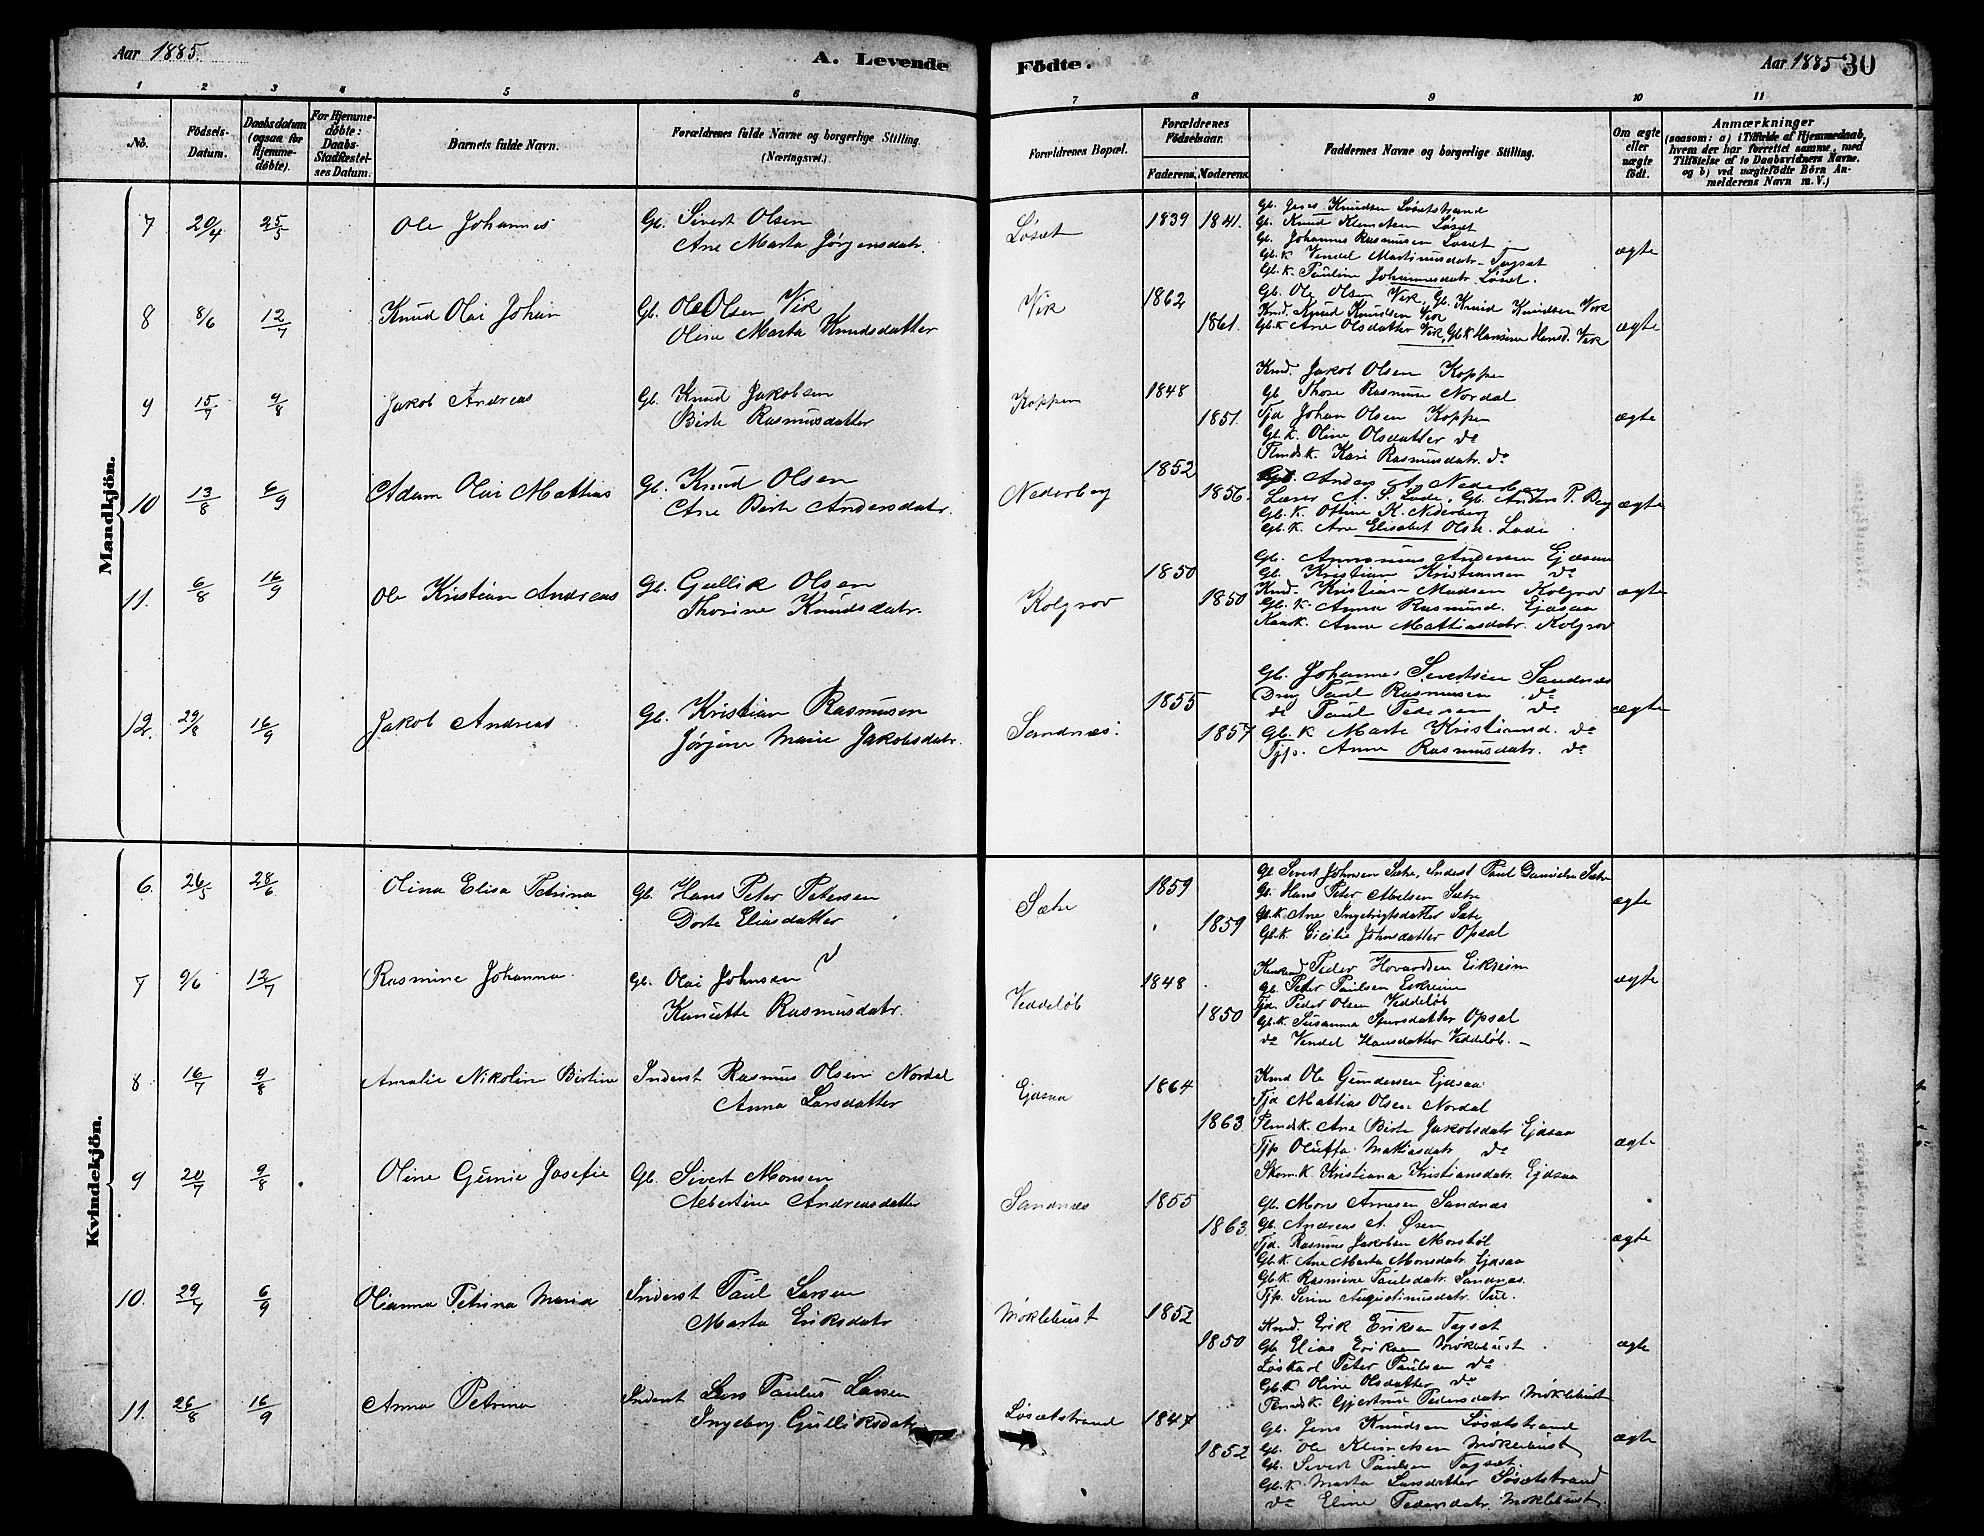 Aar 1885.
A. Levende Födte.
Aar 1885 30
1 2 3 4 5 6 7 8 9 10 11
No.
Födsels-Datum.
Daabsdatum (ogsaa for Hjemme-døbte).
For Hjemme-døbte: Daabs-Stadfæstel-ses Datum.
Barnets fulde Navn.
Forældrenes fulde Navne og borgerlige Stilling.
(Næringsvei.)
Forældrenes Bopæl.
Forældrenes Födselsaar.
Faderens. Moderens.
Faddernes Navne og borgerlige Stilling.
Om ægte eller uægte födt.
Anmærkninger
(saasom: a) i Tilfælde af Hjemmedaab,
hvem der har forrettet samme, med
Tilföielse af to Daabsvidners Navne.
og b) ved uægtefödte Börn An-
melderens Navn m. V.)
Mandkjön.
7 20/4 25/5 Ole Johannes
Gb. Sivert Olsen
Ane Marta Jørgensdatr.
Løsæt 1839 1841.
Gb. Jens Knudsen Løsætstrand
Gb. Knud Klemetsen Løsæt
Gb. Johannes Rasmussen Løsæt
Gb.k. Vendel Martinusdatr. Tagsæt
Gb.k. Pauline Johannesdatr. Løsæt.
ægte
8 8/6 12/7 Knud Olai Johan
Gb. Ole Olsen Vik
Oline Marta Knudsdatter
Vik 1862 1861.
Gb. Ole Olsen Vik, Gb. Knud Knudsen Vik
Knd. Knud Knudsen Vik
Gb.k. Ane Olsdatter Vik, Gb.k. Hansine Hansd. Vik
ægte
9 15/7 9/8 Jakob Andreas
Gb. Knud Jakobsen
Birte Rasmusdatter
Koppen 1848 1851.
Knd. Jakob Olsen Koppen
Gb. Thore Rasmussen Nordal
Tjd. Johan Olsen Koppen
Gb.k. Oline Olsdatter do
Pmdk. Kari Rasmusdatr. do
ægte
10 13/8 6/9 Adam Olai Mathias
Gb. Knud Olsen
Ane Birte Andersdatr.
Nederberg 1852 1856.
Gb. Anders A. Nederberg
Lærer A. S. Lade, Gb. Anders P. Berg
Gb.k. Ottine K. Nederberg
Gb.k. Ane Elisabet Olsd. Lade
ægte
11. 6/8 16/9 Ole Kristian Andreas
Gb. Gullik Olsen
Thorine Knudsdatr.
Kolgrov 1850 1850
Gb. Ammonius Andersen Ejdsaa
Gb. Kristian Kristiansen do
Knd. Kristian Madsen Kolgrov
Gb.k. Anna Rasmusd. Ejdsaa
Anne Mathiasdatr. Kolgrov
ægte
12. 29/8 16/9 Jakob Andreas
Gb. Kristian Rasmusen
Jørgine Marie Jakobsdatr.
Sandnæs. 1855 1857
Gb. Johannes Sivertsen Sandnæs
Drg Paul Rasmusen do
do Paul Pedersen do
Gb.k. Marte Kristiansd. do
Tjp. Anne Rasmusdatr. do
ægte
Kvindekjön.
6. 26/5 28/6 Olina Elisa Petrina
Gb. Hans Peter Petersen
Dorte Eliasdatter
Sætre 1859 1859
Gb Sivert Johnsen Sætre, Inderst Paul Danielsen Sætre
Gb. Hans Peter Abelsen Sætre
Gb.k. Ane Ingebrigtsdatter Sætre
Gb.k. Cicilie Johnsdatter Opsal
ægte
7 9/6 12/7 Rasmine Johanna
Gb. Olai Johnsen
Kanutte Rasmusdatr.
Veddeløb 1848 1850
Peder Hovardsen Eikreim
Gb. Peter Paulsen Eikreim
Tjd. Peder Olsen Veddeløb
Gb.k. Susanna Sjursdatter Opsal
do Vendel Hansdatter Veddeløb.
ægte
8 16/7 9/8 Amalie Nikoline Birtine
Inderst Rasmus Olsen Nordal
Anna Larsdatter
Ejdsaa 1864 1863
Knd Ole Gundersen Ejdsaa
Tjd Mattias Olsen Nordal
Pmdk. Ane Birte Jakobsdatr. Ejdsaa
Tjp Oluffa Mathiasdatr do
Skom.k. Kristiana Kristiansdatr. Ejdsaa
ægte
9 20/7 9/8 Oline Gunie Josefie
Gb. Sivert Monsen
Albertine Andreasdatter
Sandnæs 1855 1863
Gb. Mons Arnesen Sandnæs
Gb. Andreas A. Øren
Tjd. Rasmus Jakobsen
Gb.k. Ane Marta Monsdatr. Ejdsaa
Gb.k. Rasmine Paulsdatr. Sandnæs.
Tjp. Serine Augustinusdatr.
ægte
10. 29/7 6/9 Olianna Petrina Maria
Inderst Paul Larsen
Marta Eriksdatr
Møklebust 1852 1850
Knd. Erik Eriksen Tagsæt
Gb. Elias Eriksen Møklebust
Løskarl Peter Paulsen do
Gb.k Oline Olsdatter do
Pmdk. Gjertrud Pedersdatr. Møklebust
ægte
11. 26/8 16/9 Anna Petrina
Inderst Lars Paulus Larsen
Ingeborg Gulliksdatr
Løsætstrand 1847 1852
Gb. Jens Knudsen Løsætstrand
Gb. Ole Klemetsen Møklebust
Gb. Sivert Paulsen Tagsæt.
Gb.k. Marta Larsdatter Løsætstrand
do Eline Pedersdatr. Møklebust
ægte